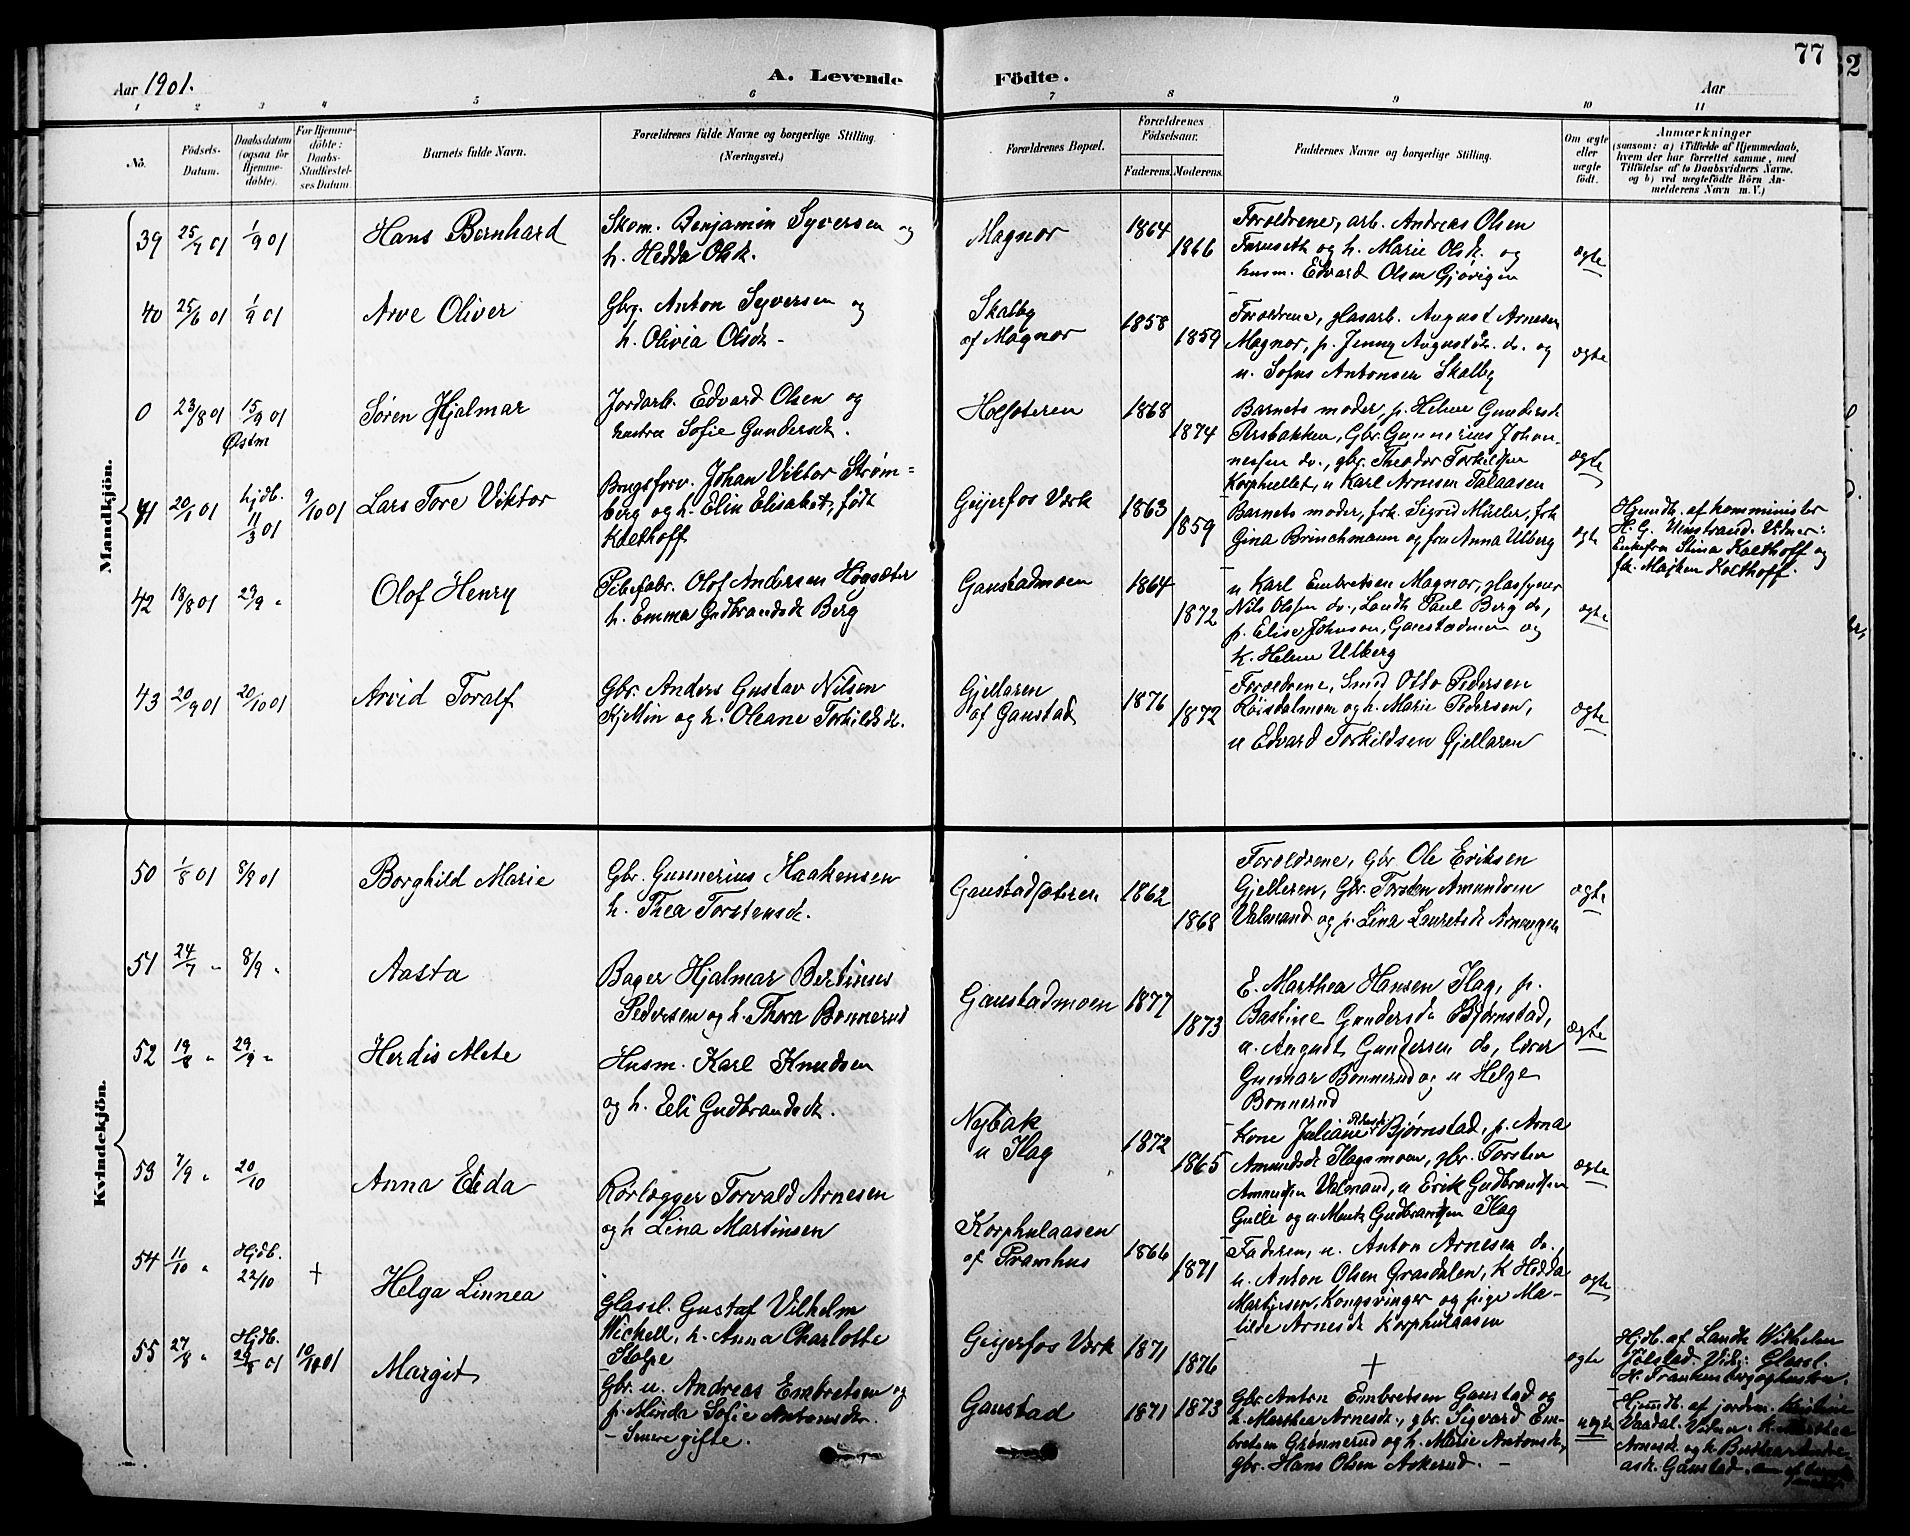 77
Aar 1901.
A. Levende Födte.
Aar
1 2 3 4 5 6 7 8 9 10 11
No.
Födsels-Datum.
Daabsdatum (ogsaa for Hjemme-döbte).
For Hjemme-döbte: Daabs-Stadfæstel-ses Datum.
Barnets fulde Navn.
Forældrenes fulde Navne og borgerlige Stilling.
(Næringsvei.)
Forældrenes Bopæl.
Forældrenes Födselsaar.
Faderens. Moderens.
Faddernes Navne og borgerlige Stilling.
Om ægte eller uægte födt.
Anmærkninger
(saasom: a) i Tilfælde af Hjemmedaab,
hvem der har forrettet samme, med
Tilföielse af to Daabsvidners Navne.
og b) ved uægtefödte Börn An-
melderens Navn m. V.)
Mandkjön.
39 25/7 01 1/9 01 Hans Bernhard
Skom. Benjamin Syversen og
h. Hedda Olsd.
Magnor 1864 1866
Forældrene, arb. Andreas Olsen
Faruseth og h. Marie Olsd. og
husm. Edvard Olsen Gjövigen
ægte
40 25/6 01 1/9 01 Arve Oliver
Gbr. Anton Syversen og
h. Olivia Olsdr
Skalby
af Magnor 1858 1859
Forældrene, glasarb. August Arnesen
Magnor, p. Jenny Augustdr. do. og
u. Sofus Antonsen Skalby
ægte
0 23/8 01 15/9 01 Östm Sören Hjalmar
Jordarb. Edvard Olsen og
hustru Sofie Gundersdr.
Holsæteren 1868 1874
Barnets moder, p. Helene Gundersdr
Persbakken, Gbr. Gunnerius Johan-
nessen do., gbr. Theodor Torkildsen
Korphullet, u Karl Arnesen Talaasen
ægte
41 20/1 01 hjdb. 11/3 01 9/10 01 Lars Tore Viktor
Brugsforv. Johan Viktor Ström=
berg og h. Elin Elisabet, födt
Kolthoff
Geijerfos Værk 1863 1859
Barnets moder, frk. Sigrid Müller, frk
Gina Brinchmann og fru Anna Ulberg
ægte
Hjemdb. af komminister
H. G. Vinstrand. Vidner:
Enkefru Stina Kolthoff og
frk. Majken Kolthoff.
42 18/8 01 29/9 " Olof Henry
Pibefabr. Olof Andersen Högsæter
h. Emma Gudbrandsdr Berg
Gaustadmoen 1864 1872
u Karl Embretsen Magnor, glaspuser
Nils Olsen do., Landh. Paul Berg do,
p. Elise Johnson, Gaustadmoen og
k. Helene Ulberg
ægte
43 20/9 01 20/10 01 Arvid Toralf
Gbr. Anders Gustav Nilsen
Kjellin og h. Oleane Torkildsdr.
Gjellaren
af Gaustad 1876 1872
Forældrene, Smed Otto Pedersen
Röisdalmoen og h. Marie Pedersen,
u Edvard Torkildsen Gjellaren
ægte
Kvindekjön.
50 1/8 01 8/9 01 Borghild Marie
Gbr. Gunnerius Haakensen
h. Thea Torstensdr.
Gaustadsæteren 1862 1868
Forældrene, Gbr Ole Eriksen
Gjelleren, Gbr. Torsten Amundsen
Valmand og p. Lina Lauretsdr Arneengen
ægte
51 24/7 " 8/9 " Aasta
Bager Hjalmar Bertinus
Pedersen og h. Thora Bonnerud
Gaustadmoen 1877 1873
E. Marthea Hansen Ilag, p.
Bastine Gundersdr Björnstad,
u. August Gundersen do, lærer
Gunnar Bonnerud og u Helge
Bonnerud
ægte
52 19/8 " 29/9 " Herdis Alete
Husm. Karl Knudsen
og h. Eli Gudbrandsdr.
Nybak
u Ilag 1872 1865
Kone Juliane Pedersdr Björnstad, p. Arna
Amundsdr Ilagsmoen, gbr. Torsten
Amundsen Valmand, u Erik Gudbrandsen
Gulli og u. Mentz Gudbrandsen Ilag
ægte
53 7/9 " 20/10 Anna Elida
Rörlægger Torvald Arnesen
og h Lina Martinsen
Korphulaasen
af Pramhus 1866 1871
Faderen, u. Anton Arnesen do,
u. Anton Olsen Grasdalen, k Hedda
Martinsen, Kongsvinger og pige Ma-
tilde Arnesdr Korphulaasen
ægte
54 11/10 " Hjdb. 22/10 † Helga Linnea
Glassl. Gustaf Vilhelm
Wickell, h. Anna Charlotte
Stolpe
Geijerfos Værk 1871 1876
†
ægte
Hjdb. af Landh. Wilhelm
Jölstad. Vidn: Glassl.
H. Frankenberg og hustru.
55 27/8 " Hjdb. 29/8 01 10/10 01 Margit
Gbr. u. Andreas Embretsen og
p. Minda Sofie Antonsdr.
– Senere gifte.
Gaustad 1871 1873
Gbr Anton Embretsen Gaustad og
h. Marthea Arnesdr., gbr. Sigvard Em-
bretsen Grönnerud og h. Marie Antonsdr,
gbr. Hans Olsen Askerud. –
uægte
Hjemdb. af jordm. Kristine
Vaadal. Vidner: K. Marthea
Arnesdr og k Berthea Andre-
asdr. Gaustad.